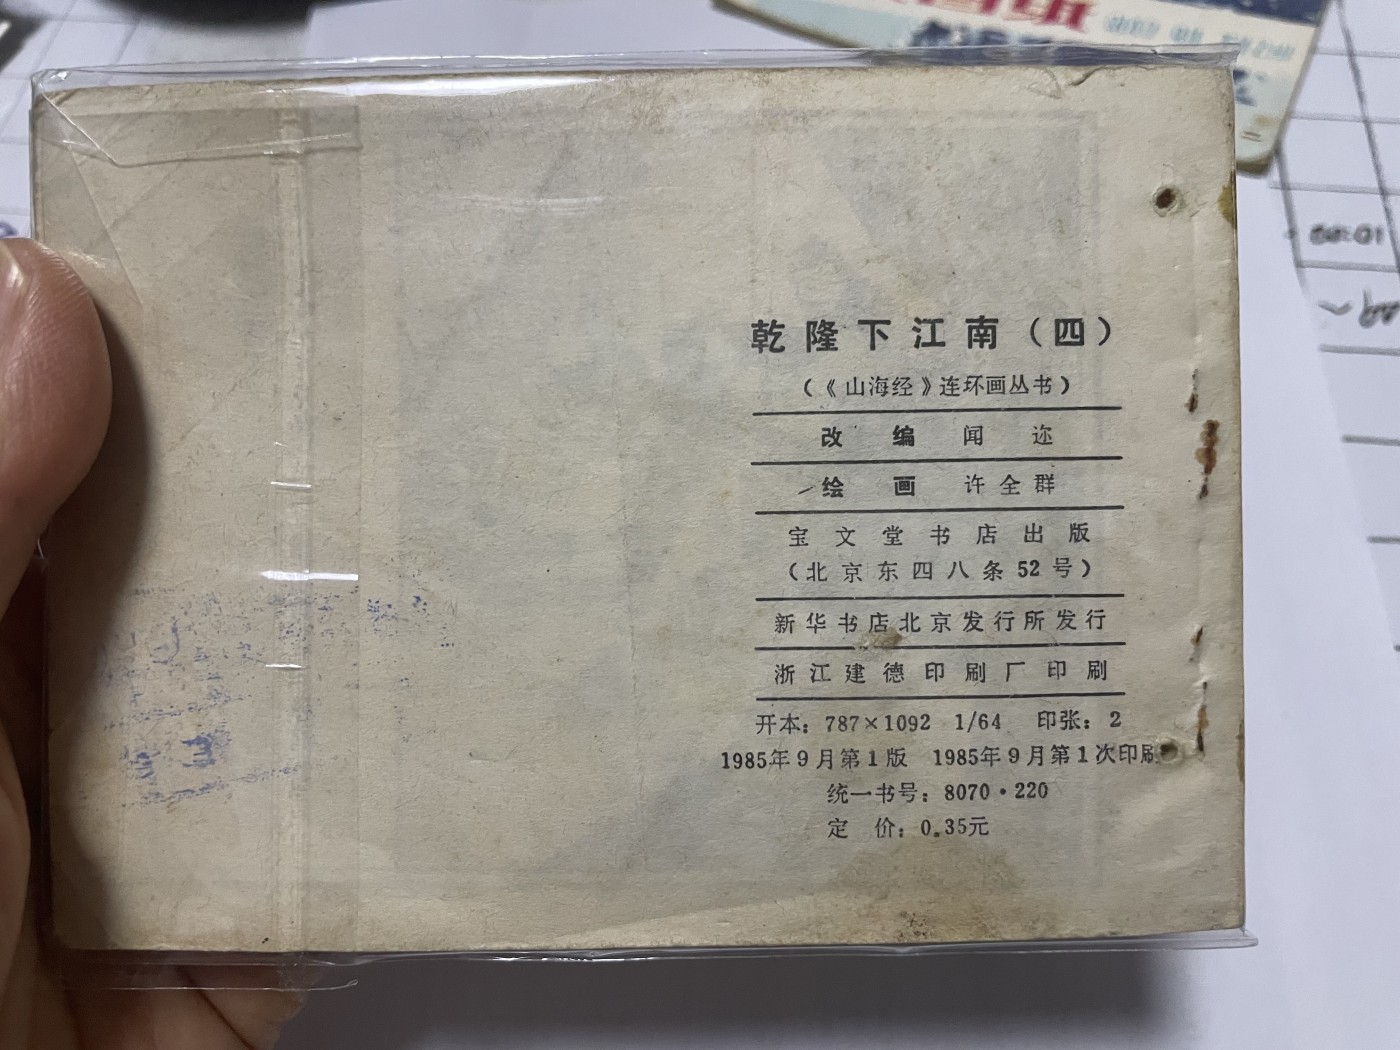 乾隆下江南（四）
（《山海经》连环画丛书）
改编 闻迩
绘画 许全群
宝文堂书店出版
（北京东四八条52号）
新华书店北京发行所发行
浙江建德印刷厂印刷
开本：787×1092 1/64 印张：2
1985年9月第1版 1985年9月第1次印刷
统一书号：8070·220
定 价：0.35元